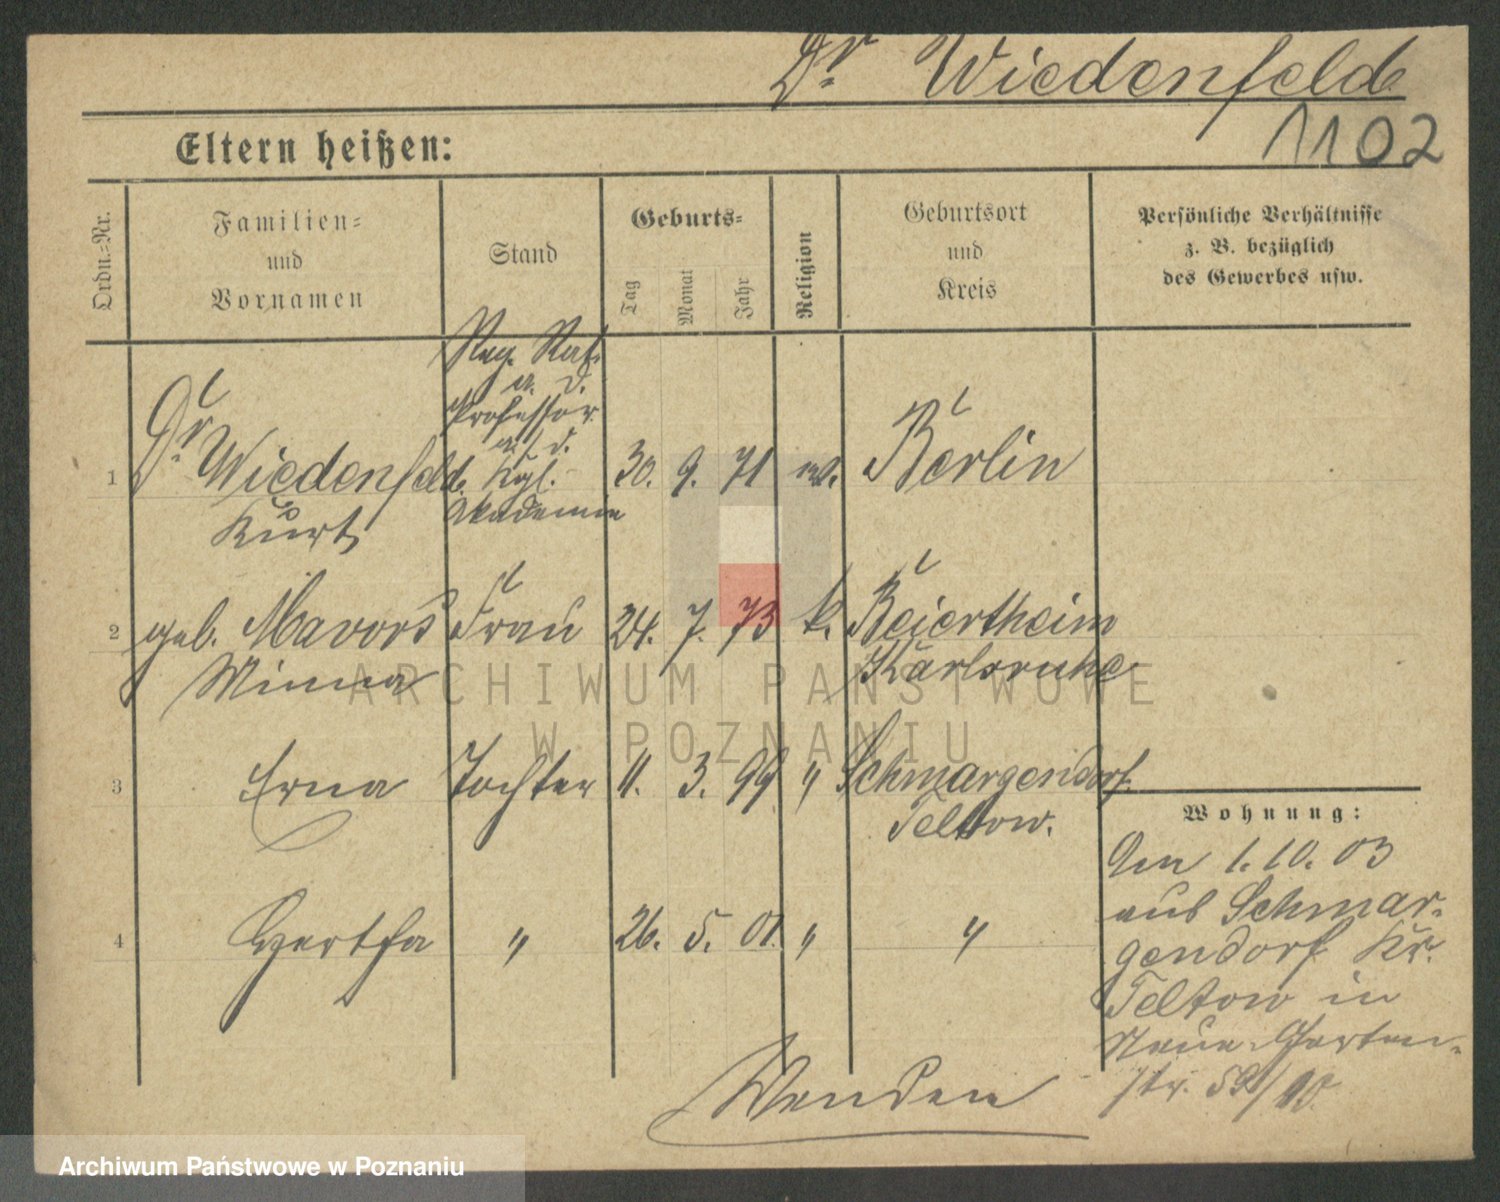 Dr. Wiedenfeld
1102
Eltern heißen:
Ordn.-Nr.
Familien-
und
Vornamen
Stand
Geburts-
Tag
Monat
Jahr
Religion
Geburtsort
und
Kreis
Persönliche Verhältnisse
z. B. bezüglich
des Gewerbes usw.
Reg. Rat.
a. D.
Professor
a. d.
Kgl.
Akademie
1 Dr. Wiedenfeld 30. 9. 71 ev. Berlin
Kurt
2 geb. Mavors Frau 24. 7. 73 k. Beiertheim
Minna Karlsruhe
3 Erna Tochter 11. 3. 99 " Schmargendorf
Teltow.
4 Hertha " 26. 5. 01. " "
Wohnung:
Am 1. 10. 03
aus Schmar-
gendorf Kr.
Teltow in
Neue-Garten-
str. 59/
Wenden
ARCHIWUM PAŃSTWOWE
W POZNANIU
Archiwum Państwowe w Poznaniu